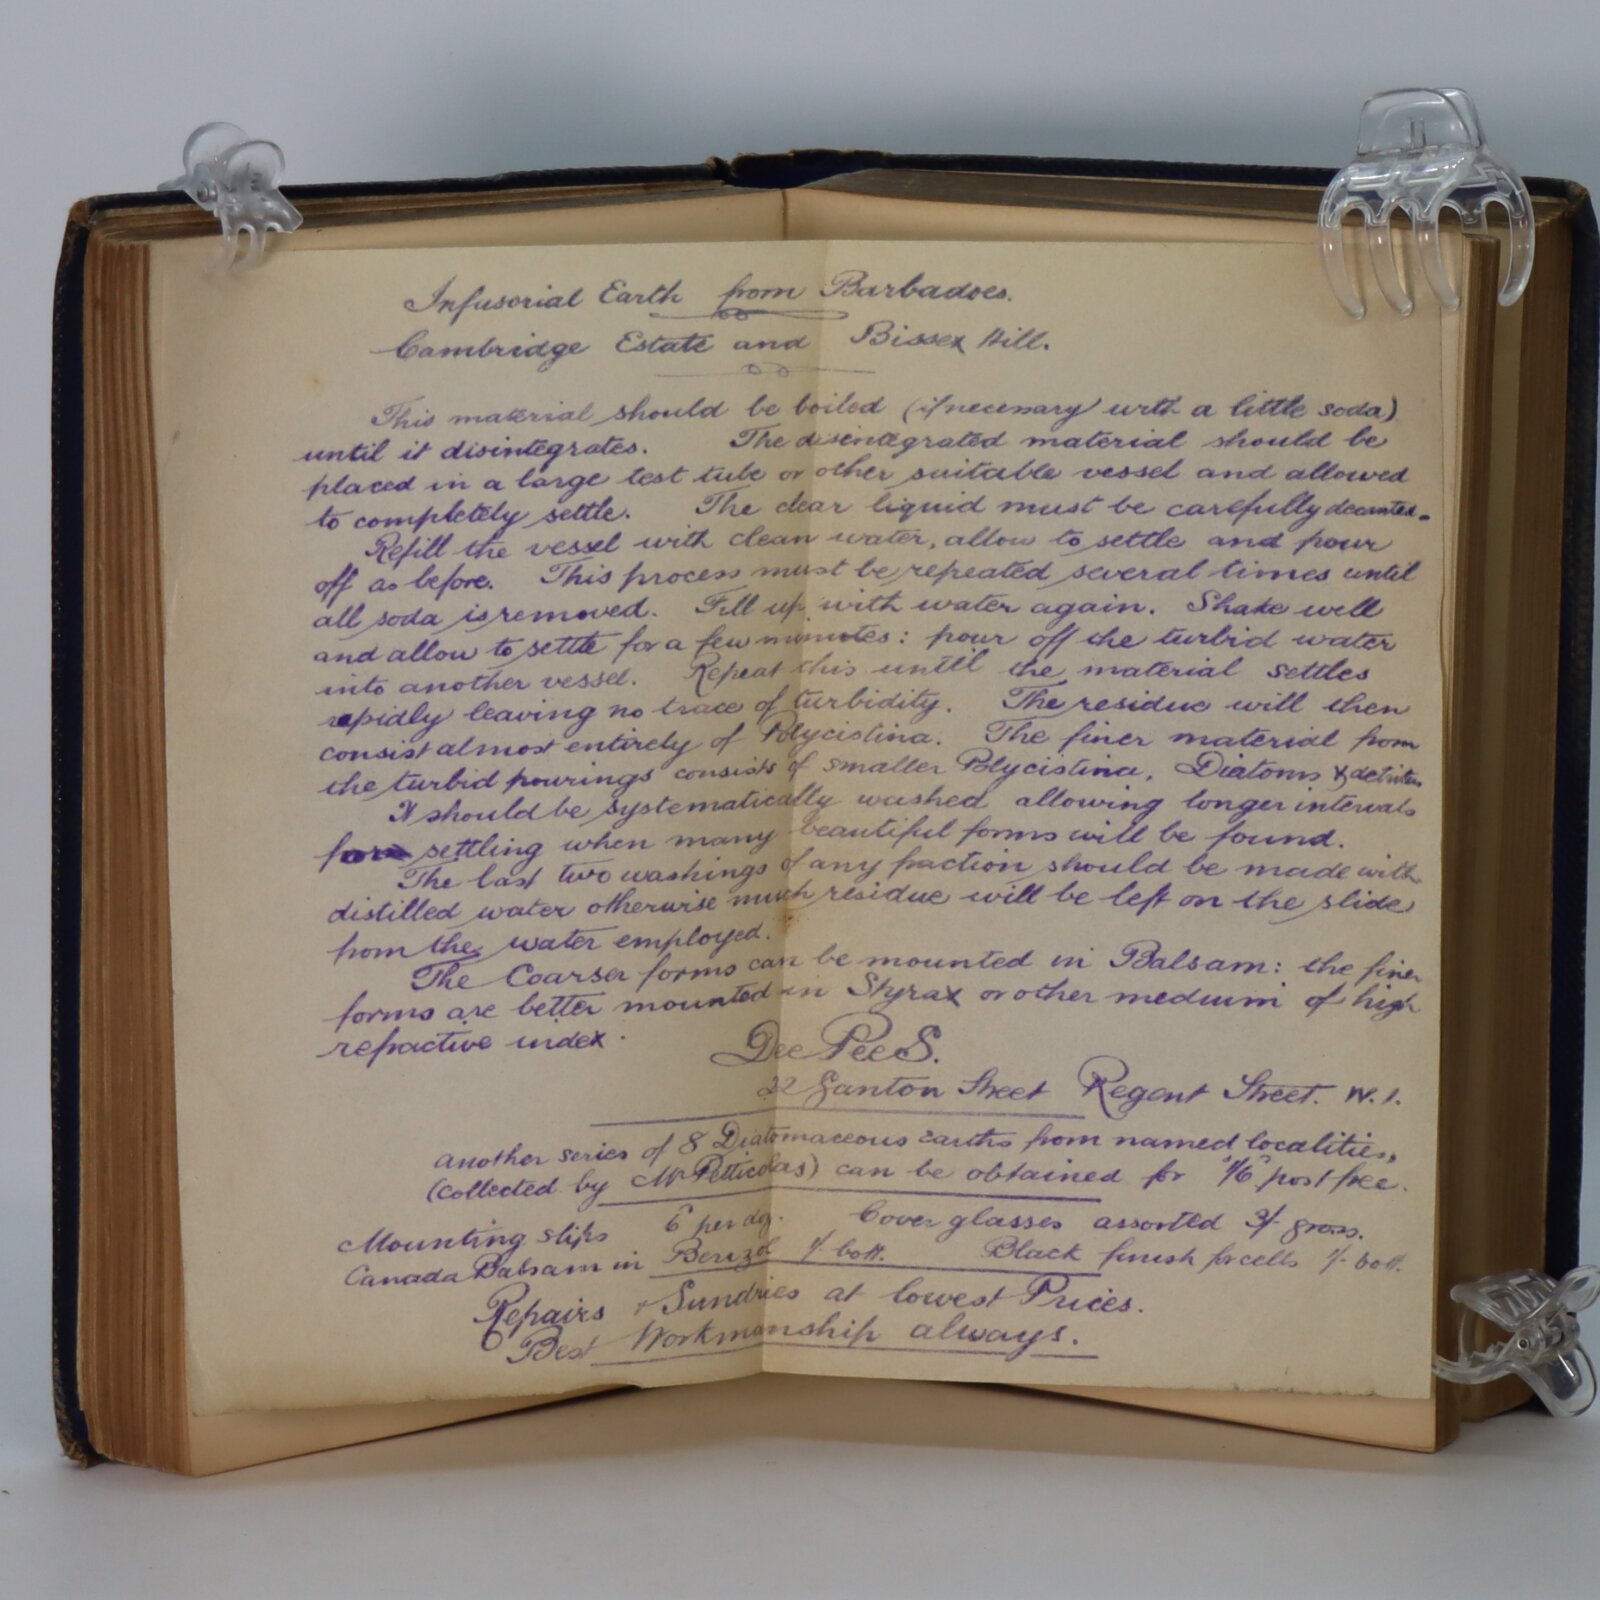 Infusorial Earth from Barbadoes.
Cambridge Estate and Bissex Hill.
This material should be boiled (if necessary with a little soda)
until it disintegrates. The disintegrated material should be
placed in a large test tube or other suitable vessel and allowed
to completely settle. The clear liquid must be carefully decanted.
Refill the vessel with clean water, allow to settle and pour
off as before. This process must be repeated several times until
all soda is removed. Fill up with water again. Shake well
and allow to settle for a few minutes: pour off the turbid water
into another vessel. Repeat this until the material settles
rapidly leaving no trace of turbidity. The residue will then
consist almost entirely of Polycistina. The finer material from
the turbid pourings consists of smaller Polycistina, Diatoms & detritus
It should be systematically washed allowing longer intervals
for settling when many beautiful forms will be found.
The last two washings of any fraction should be made with
distilled water otherwise much residue will be left on the slide
from the water employed.
The Coarser forms can be mounted in Balsam: the finer
forms are better mounted in Styrax or other medium of high
refractive index.
Dee Pee S.
22 Ganton Street Regent Street. W.1.
another series of 8 Diatomaceous Earths from named localities,
(collected by Mr Petticolas) can be obtained for 1/6 post free.
Mounting slips 6 per doz. Cover glasses assorted 3/- gross.
Canada Balsam in Benzol 1/ bott. Black finish for cells 1/- bott.
Repairs & Sundries at lowest Prices.
Best Workmanship always.